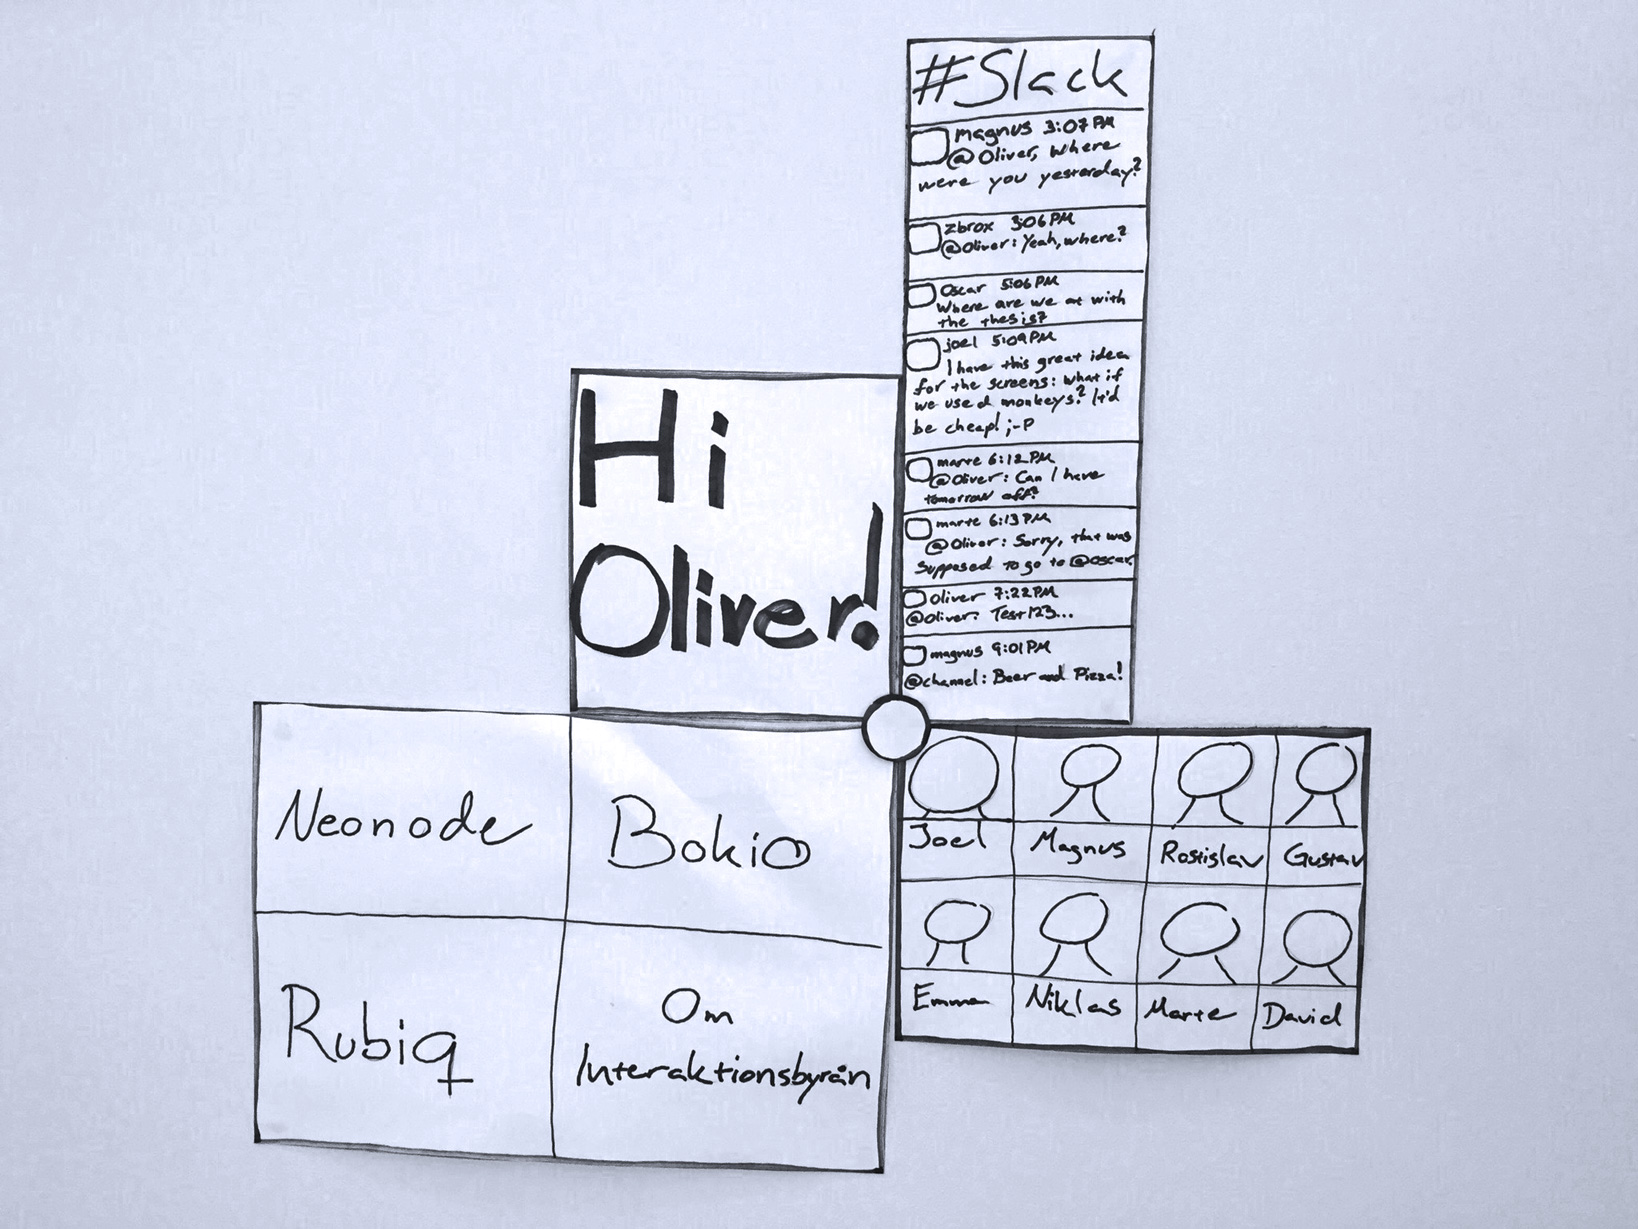 #Slack
magnus 3:07PM
@Oliver, where
were you yesterday?
zbrox 3:06PM
@Oliver: Yeah, where?
Oscar 5:06PM
Where are we at with
the thesis?
joel 5:09PM
I have this great idea
for the screens: what if
we used monkeys? It'd
be cheap! ;-P
marre 6:12PM
@Oliver: Can I have
tomorrow off?
marre 6:13PM
@Oliver: Sorry, that was
supposed to go to @oscar.
oliver 7:22PM
@Oliver: Test123...
magnus 9:01PM
@channel: Beer and Pizza!
Hi
Oliver!
Neonode
Bokio
Rubiq
Om
Interaktionsbyrån
Joel
Magnus
Rostislav
Gustav
Emma
Niklas
Marre
David